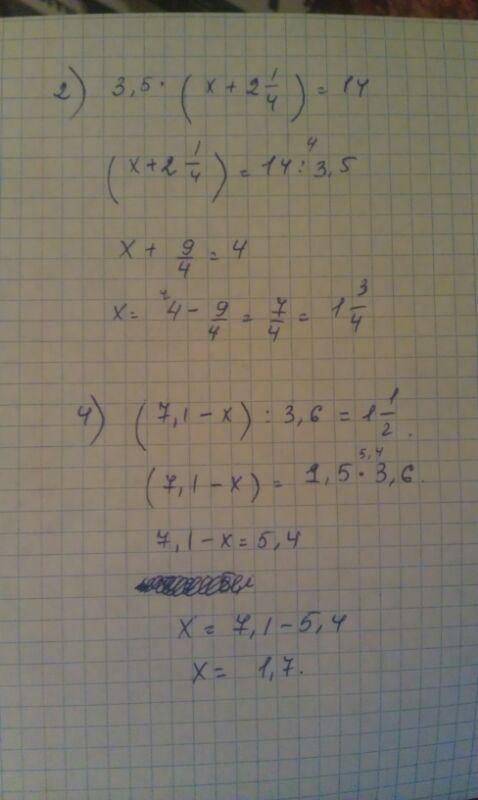 2) 3,5 · (x + 2 1/4) = 14
(x + 2 1/4) = 14 : 3,5 4
x + 9/4 = 4
x = 4 - 9/4 = 7/4 = 1 3/4
4) (7,1 - x) : 3,6 = 1 1/2.
(7,1 - x) = 1,5 · 3,6. 5,4
7,1 - x = 5,4
x = 7,1 - 5,4
x = 1,7.